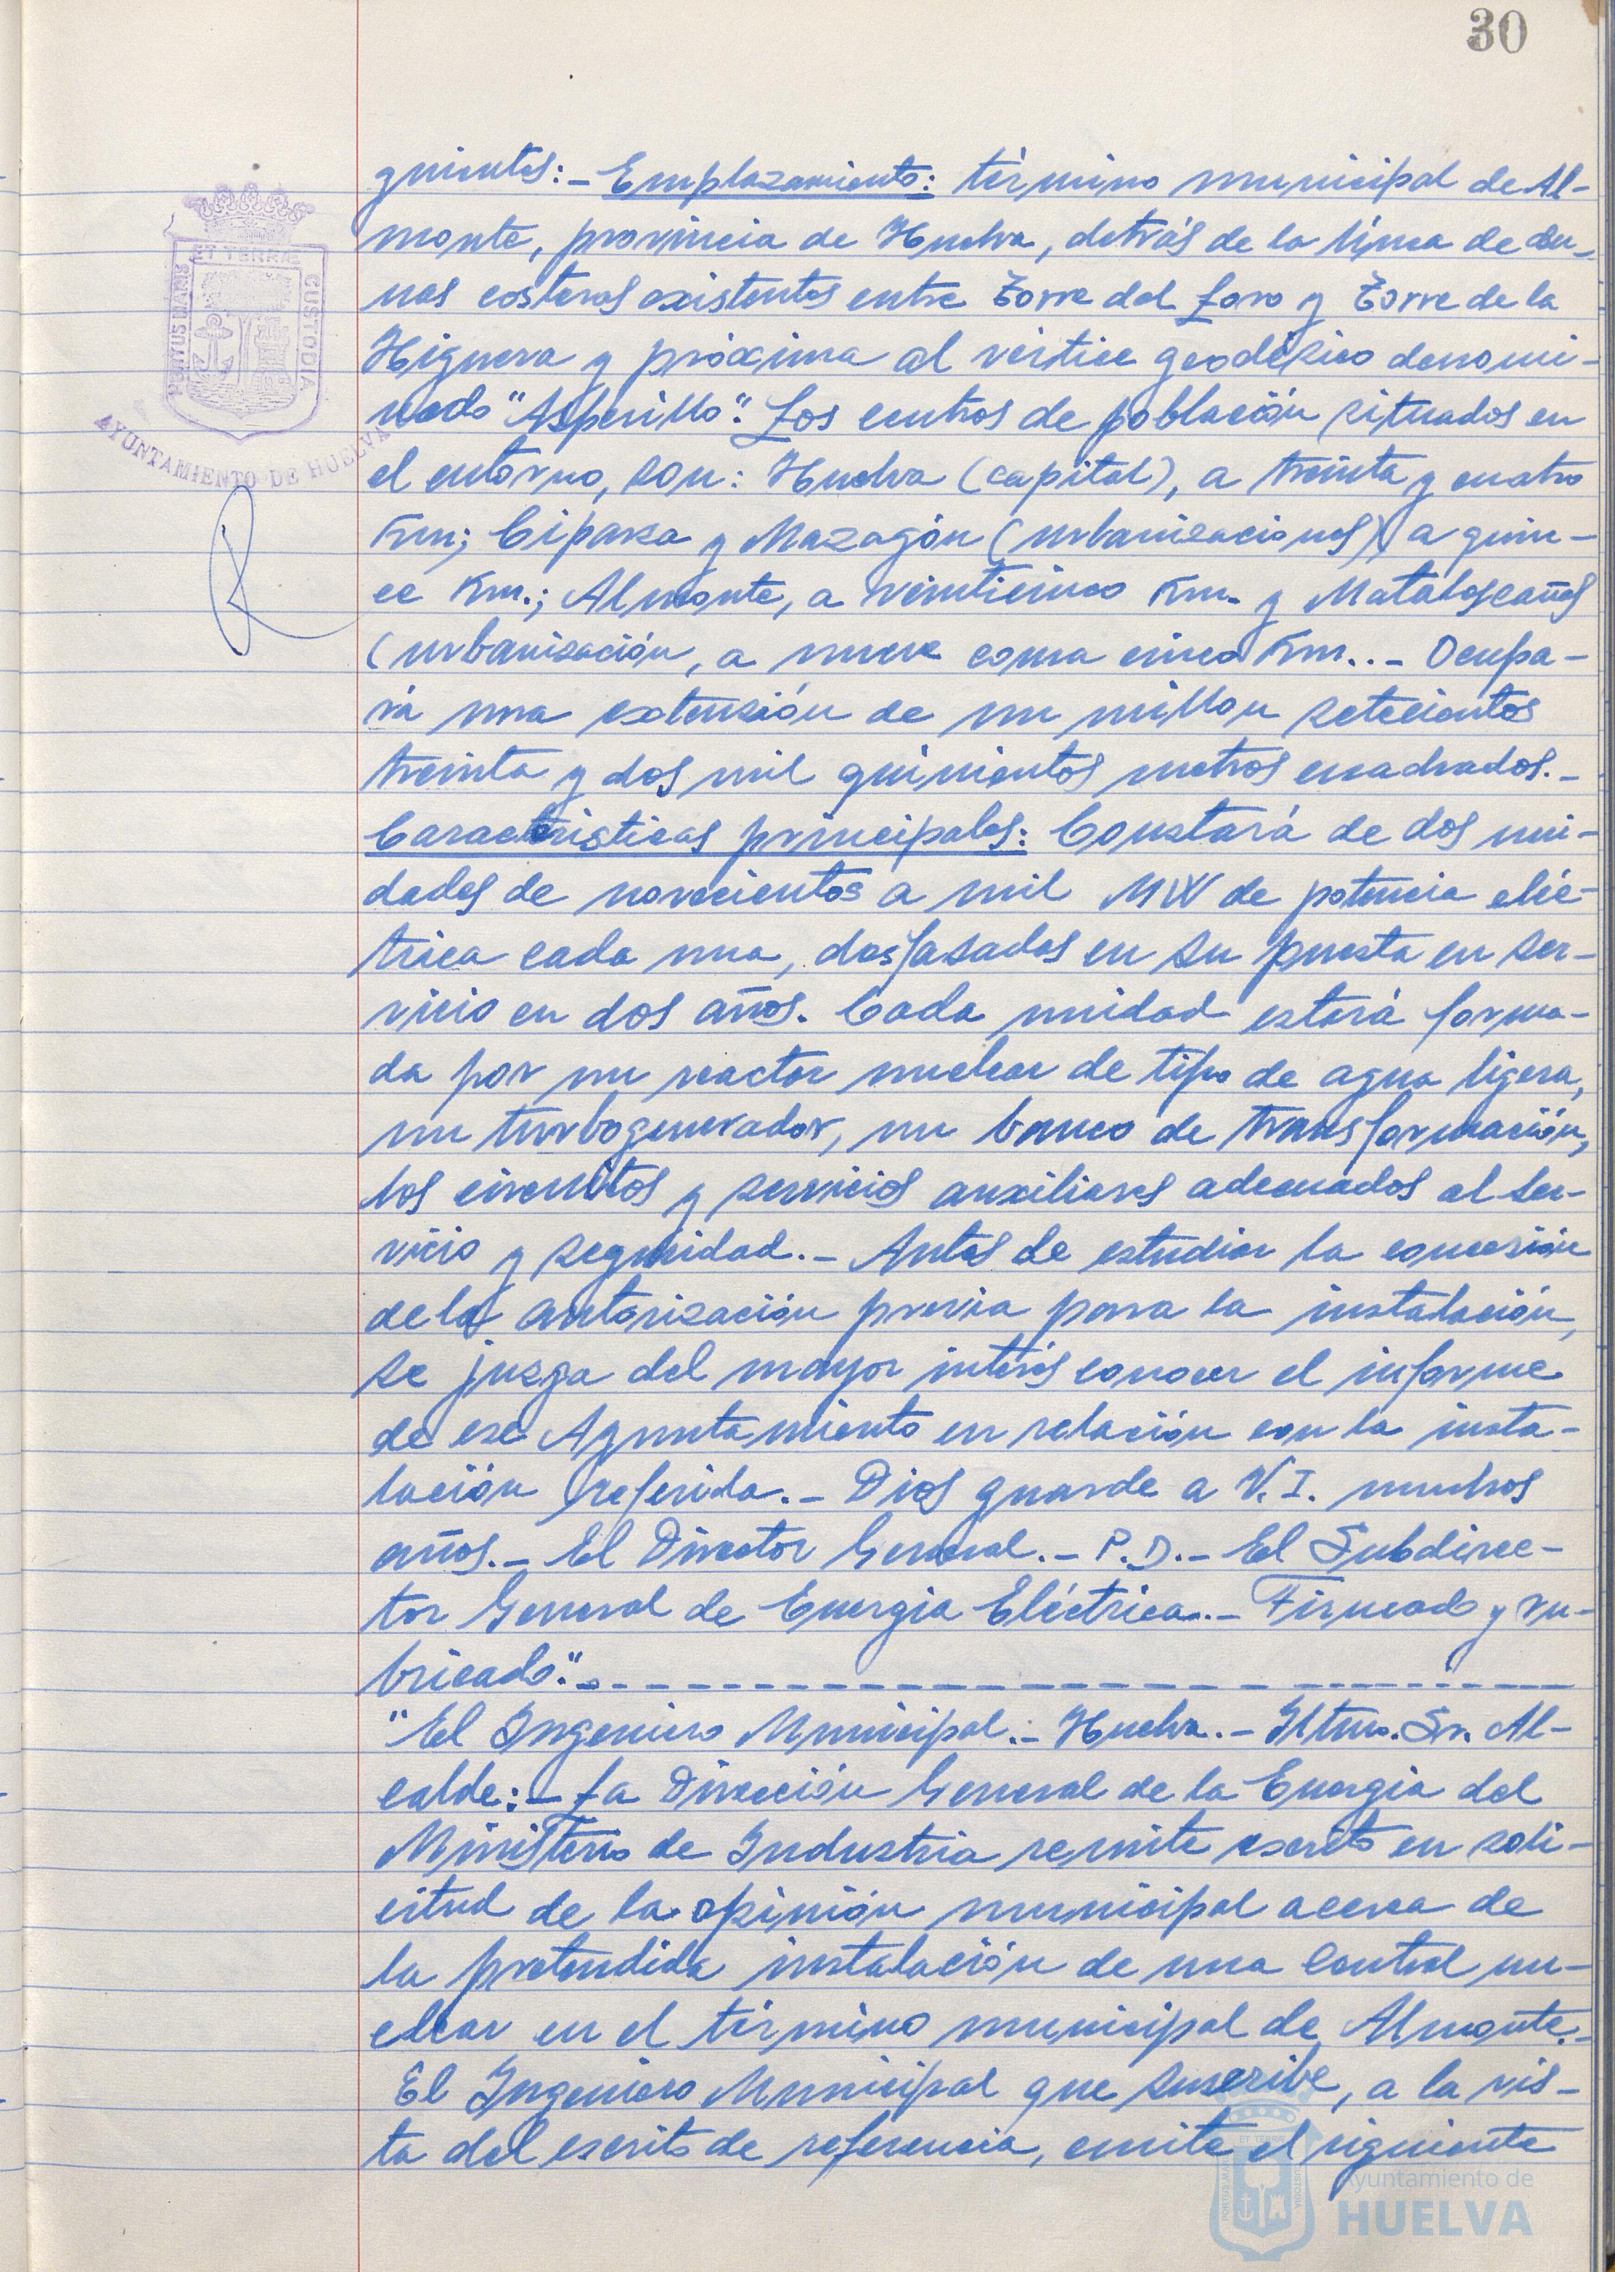 30
guientes:- Emplazamiento: término municipal de Al-
monte, provincia de Huelva, detrás de la línea de du-
nas costeras existentes entre Torre del Loro y Torre de la
Higuera y próxima al vértice geodésico denomi-
nado "Asperillo". Los centros de población situados en
el entorno, son: Huelva (capital), a treinta y cuatro
Km; Ciparsa y Mazagón (urbanizaciones) a quin-
ce Km.; Almonte, a veinticinco Km. y Matalascañas
(urbanización, a nueve coma cinco Km..- Ocupa-
rá una extensión de un millon setecientos
treinta y dos mil quinientos metros cuadrados.-
Características principales: Constará de dos uni-
dades de novecientos a mil MW de potencia eléc-
trica cada una, desfasados en su puesta en ser-
vicio en dos años. Cada unidad estará forma-
da por un reactor nuclear de tipo de agua ligera,
un turbogenerador, un banco de transformación,
los circuitos y servicios auxiliares adecuados al ser-
vicio y seguridad.- Antes de estudiar la concesión
de la autorización previa para la instalación,
se juzga del mayor interés conocer el informe
de ese Ayuntamiento en relación con la insta-
lación referida.- Dios guarde a V.I. muchos
años.- El Director General.- P.D.- El Subdirec-
tor General de Energia Eléctrica..- Firmado y ru-
bricado".-
"El Ingeniero Municipal.- Huelva.- Iltmo. Sr. Al-
calde:- La Dirección General de la Energia del
Ministerio de Industria remite escrito en soli-
citud de la opinión municipal acerca de
la pretendida instalación de una Central nu-
clear en el término municipal de Almonte.-
El Ingeniero Municipal que suscribe, a la vis-
ta del escrito de referencia, emite el siguiente
PORTUS MARIS
ET TERRÆ
CUSTODIA
AYUNTAMIENTO DE HUELVA
Ayuntamiento de
HUELVA